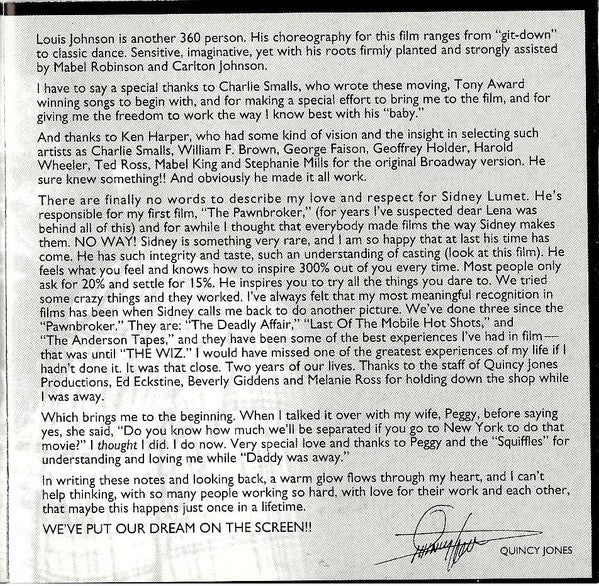 Louis Johnson is another 360 person. His choreography for this film ranges from “git-down”
to classic dance. Sensitive, imaginative, yet with his roots firmly planted and strongly assisted
by Mabel Robinson and Carlton Johnson.
I have to say a special thanks to Charlie Smalls, who wrote these moving, Tony Award
winning songs to begin with, and for making a special effort to bring me to the film, and for
giving me the freedom to work the way I know best with his “baby.”
And thanks to Ken Harper, who had some kind of vision and the insight in selecting such
artists as Charlie Smalls, William F. Brown, George Faison, Geoffrey Holder, Harold
Wheeler, Ted Ross, Mabel King and Stephanie Mills for the original Broadway version. He
sure knew something!! And obviously he made it all work.
There are finally no words to describe my love and respect for Sidney Lumet. He’s
responsible for my first film, “The Pawnbroker,” (for years I’ve suspected dear Lena was
behind all of this) and for awhile I thought that everybody made films the way Sidney makes
them. NO WAY! Sidney is something very rare, and I am so happy that at last his time has
come. He has such integrity and taste, such an understanding of casting (look at this film). He
feels what you feel and knows how to inspire 300% out of you every time. Most people only
ask for 20% and settle for 15%. He inspires you to try all the things you dare to. We tried
some crazy things and they worked. I’ve always felt that my most meaningful recognition in
films has been when Sidney calls me back to do another picture. We’ve done three since the
“Pawnbroker.” They are: “The Deadly Affair,” “Last Of The Mobile Hot Shots,” and
“The Anderson Tapes,” and they have been some of the best experiences I’ve had in film—
that was until “THE WIZ.” I would have missed one of the greatest experiences of my life if I
hadn’t done it. It was that close. Two years of our lives. Thanks to the staff of Quincy Jones
Productions, Ed Eckstine, Beverly Giddens and Melanie Ross for holding down the shop while
I was away.
Which brings me to the beginning. When I talked it over with my wife, Peggy, before saying
yes, she said, “Do you know how much we’ll be separated if you go to New York to do that
movie?” I thought I did. I do now. Very special love and thanks to Peggy and the “Squiffles” for
understanding and loving me while “Daddy was away.”
In writing these notes and looking back, a warm glow flows through my heart, and I can’t
help thinking, with so many people working so hard, with love for their work and each other,
that maybe this happens just once in a lifetime.
WE’VE PUT OUR DREAM ON THE SCREEN!!
QUINCY JONES